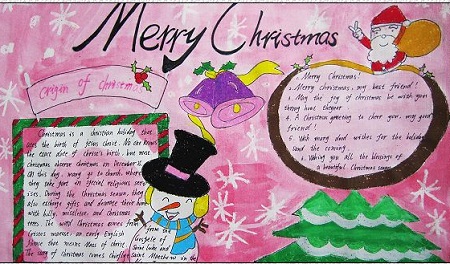 Merry Christmas
origin of christmas
Christmas is a christian holiday that
the birth of jesus christ. No one knows
the exact date of christ's birth, but most
christmas on December
On this day, many go to church, where
they take part in special religious
During the Christmas season, they
also exchange gifts and decorate their
with holly, mistletoe, and Christmas
trees. The word Christmas comes from
an early English
that means Mass of christ.
The song of Christmas comes chiefly
from the
Gospels of
Saint Luke and
Saint Matthew in the
1. Merry Christmas!
2. Merry christmas, my best friend!
3. May the joy of christmas be with you
4. A Christmas greeting to cheer you, my good
friend!
5. good wishes for the holidays
and the coming
6. Wishing you all the blessings of
a beautiful Christmas season.